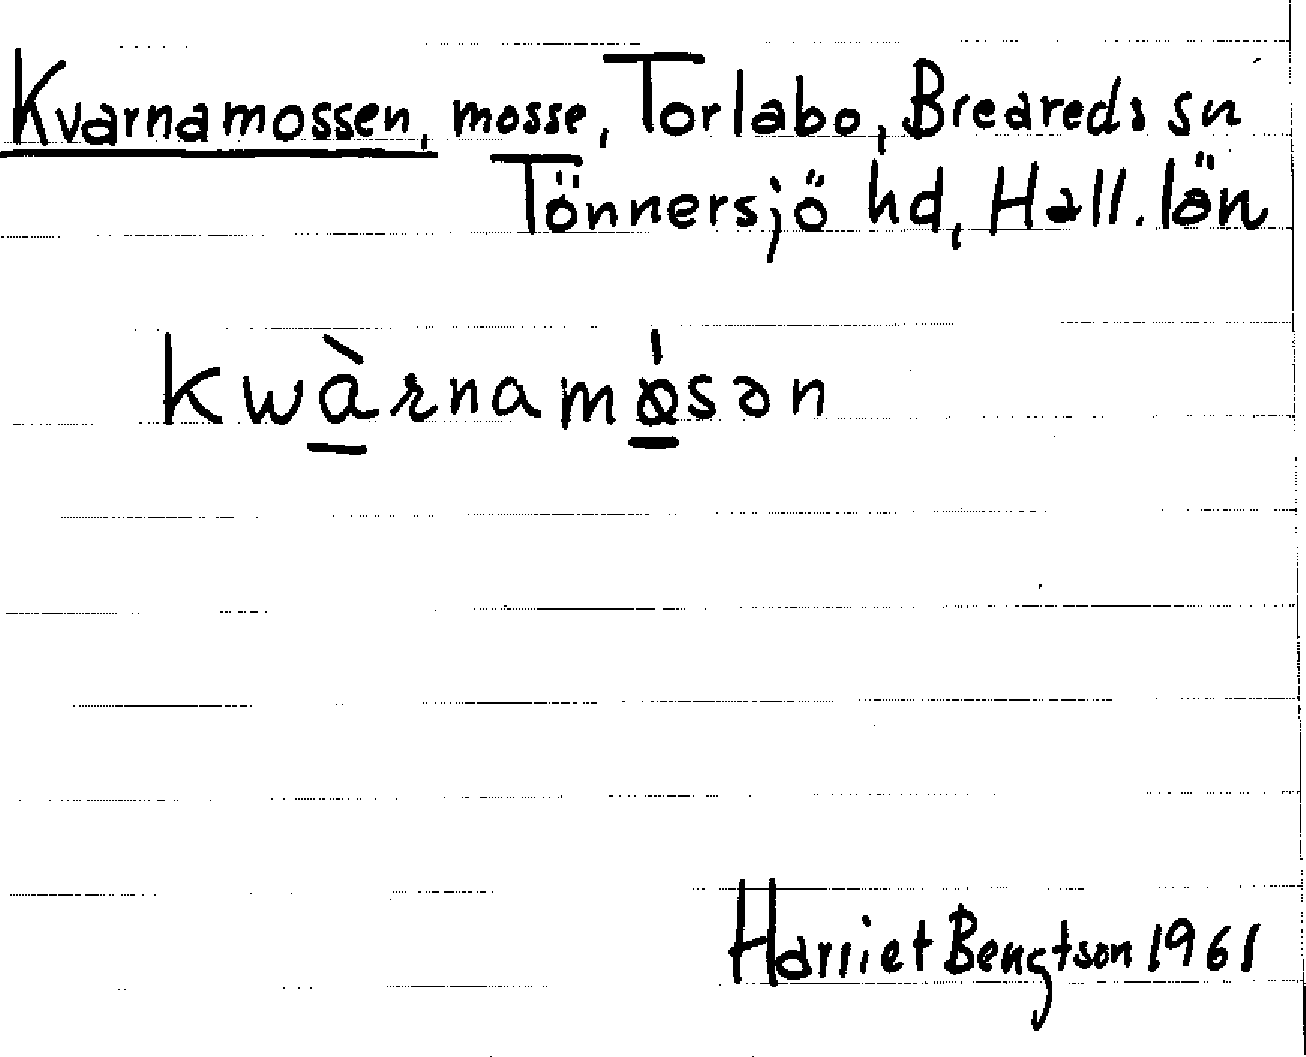 Kvarnamossen, mosse, Torlabo, Breareds sn
Tönnersjö hd, Hall. län
kwàrnamósən
Harriet Bengtson 1961